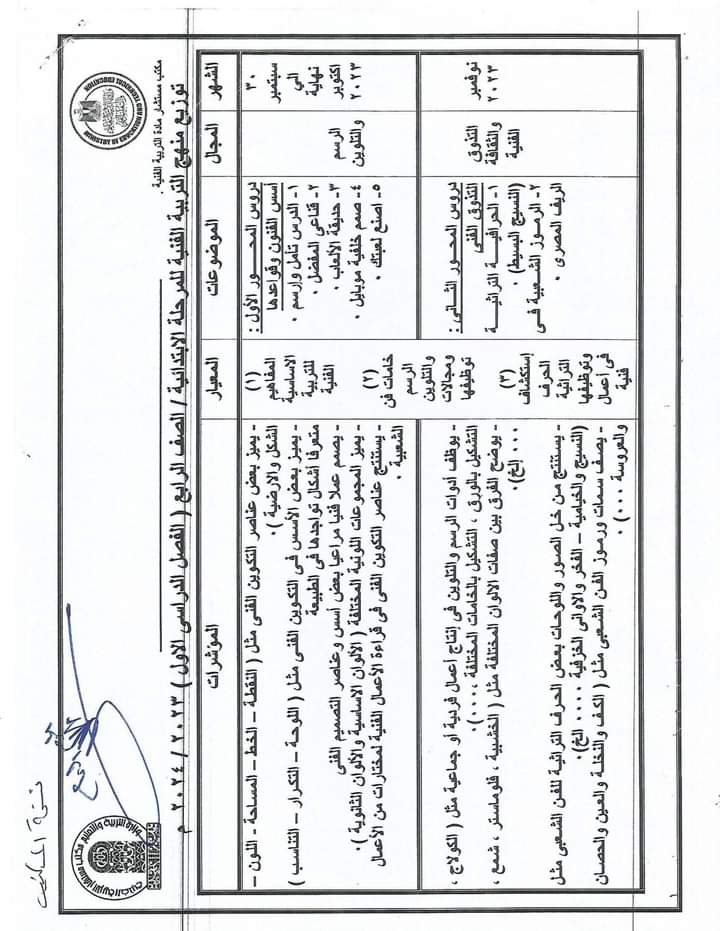 مكتب مستشار مادة التربية الفنية
توزيع منهج التربية الفنية للمرحلة الابتدائية / الصف الرابع ( الفصل الدراسى الاول ) ٢٠٢٣ / ٢٠٢٤ م
الشهر
المجال
الموضوعات
المعيار
المؤشرات
٣٠
سبتمبر
الي
نهاية
اكتوبر
٢٠٢٣
الرسم
والتلوين
دروس المحور الأول :
أسس الفنون وقواعدها
١- الدرس تأمل وإرسم .
٢- قناعى المفضل .
٣- حديقة الألعاب .
٤- صمم خلفية موبايل .
٥- اصنع لعبتك .
(١)
المفاهيم
الاساسية
للتربية
الفنية
(٢)
خامات فن
الرسم
والتلوين
ومجالات
توظيفها
- يميز بعض عناصر التكوين الفنى مثل ( النقطة – الخط – المساحة – اللون –
الشكل والارضية ) .
- يميز بعض الأسس فى التكوين الفنى مثل ( اللوحة – التكرار – التناسب )
متعرفا أشكال تواجدها فى الطبيعة
- يصمم عملا فنيا مراعيا بعض أسس وعناصر التصميم الفنى
- يميز المجموعات اللونية المختلفة ( الألوان الاساسية والألوان الثانوية ) .
- يستنتج عناصر التكوين الفنى فى قراءة الأعمال الفنية لمختارات من الأعمال
الشعبية .
- يوظف أدوات الرسم والتلوين فى إنتاج أعمال فردية أو جماعية مثل ( الكولاج ،
التشكيل بالورق ، التشكيل بالخامات المختلفة ، ٠٠٠) .
- يوضح الفرق بين صفات الالوان المختلفة مثل ( الخشبية ، فلوماستر ، شمع ،
٠٠٠ إلخ) .
نوفمبر
٢٠٢٣
التذوق
والثقافة
الفنية
دروس المحور الثانى :
التذوق الفنى
١- الحرافية التراثية
(النسيج البسيط) .
٢- الرموز الشعبية فى
الريف المصرى .
(٣)
إستكشاف
الحرف
التراثية
وتوظيفها
فى أعمال
فنية
- يستنتج من خلال الصور واللوحات بعض الحرف التراثية للفن الشعبى مثل
(النسيج والخيامية – الفخر والاوانى الخزفية ٠٠٠٠ الخ) .
- يصف سمات ورموز الفن الشعبى مثل ( الكف والنخلة والعين والحصان
والعروسة ٠٠٠) .